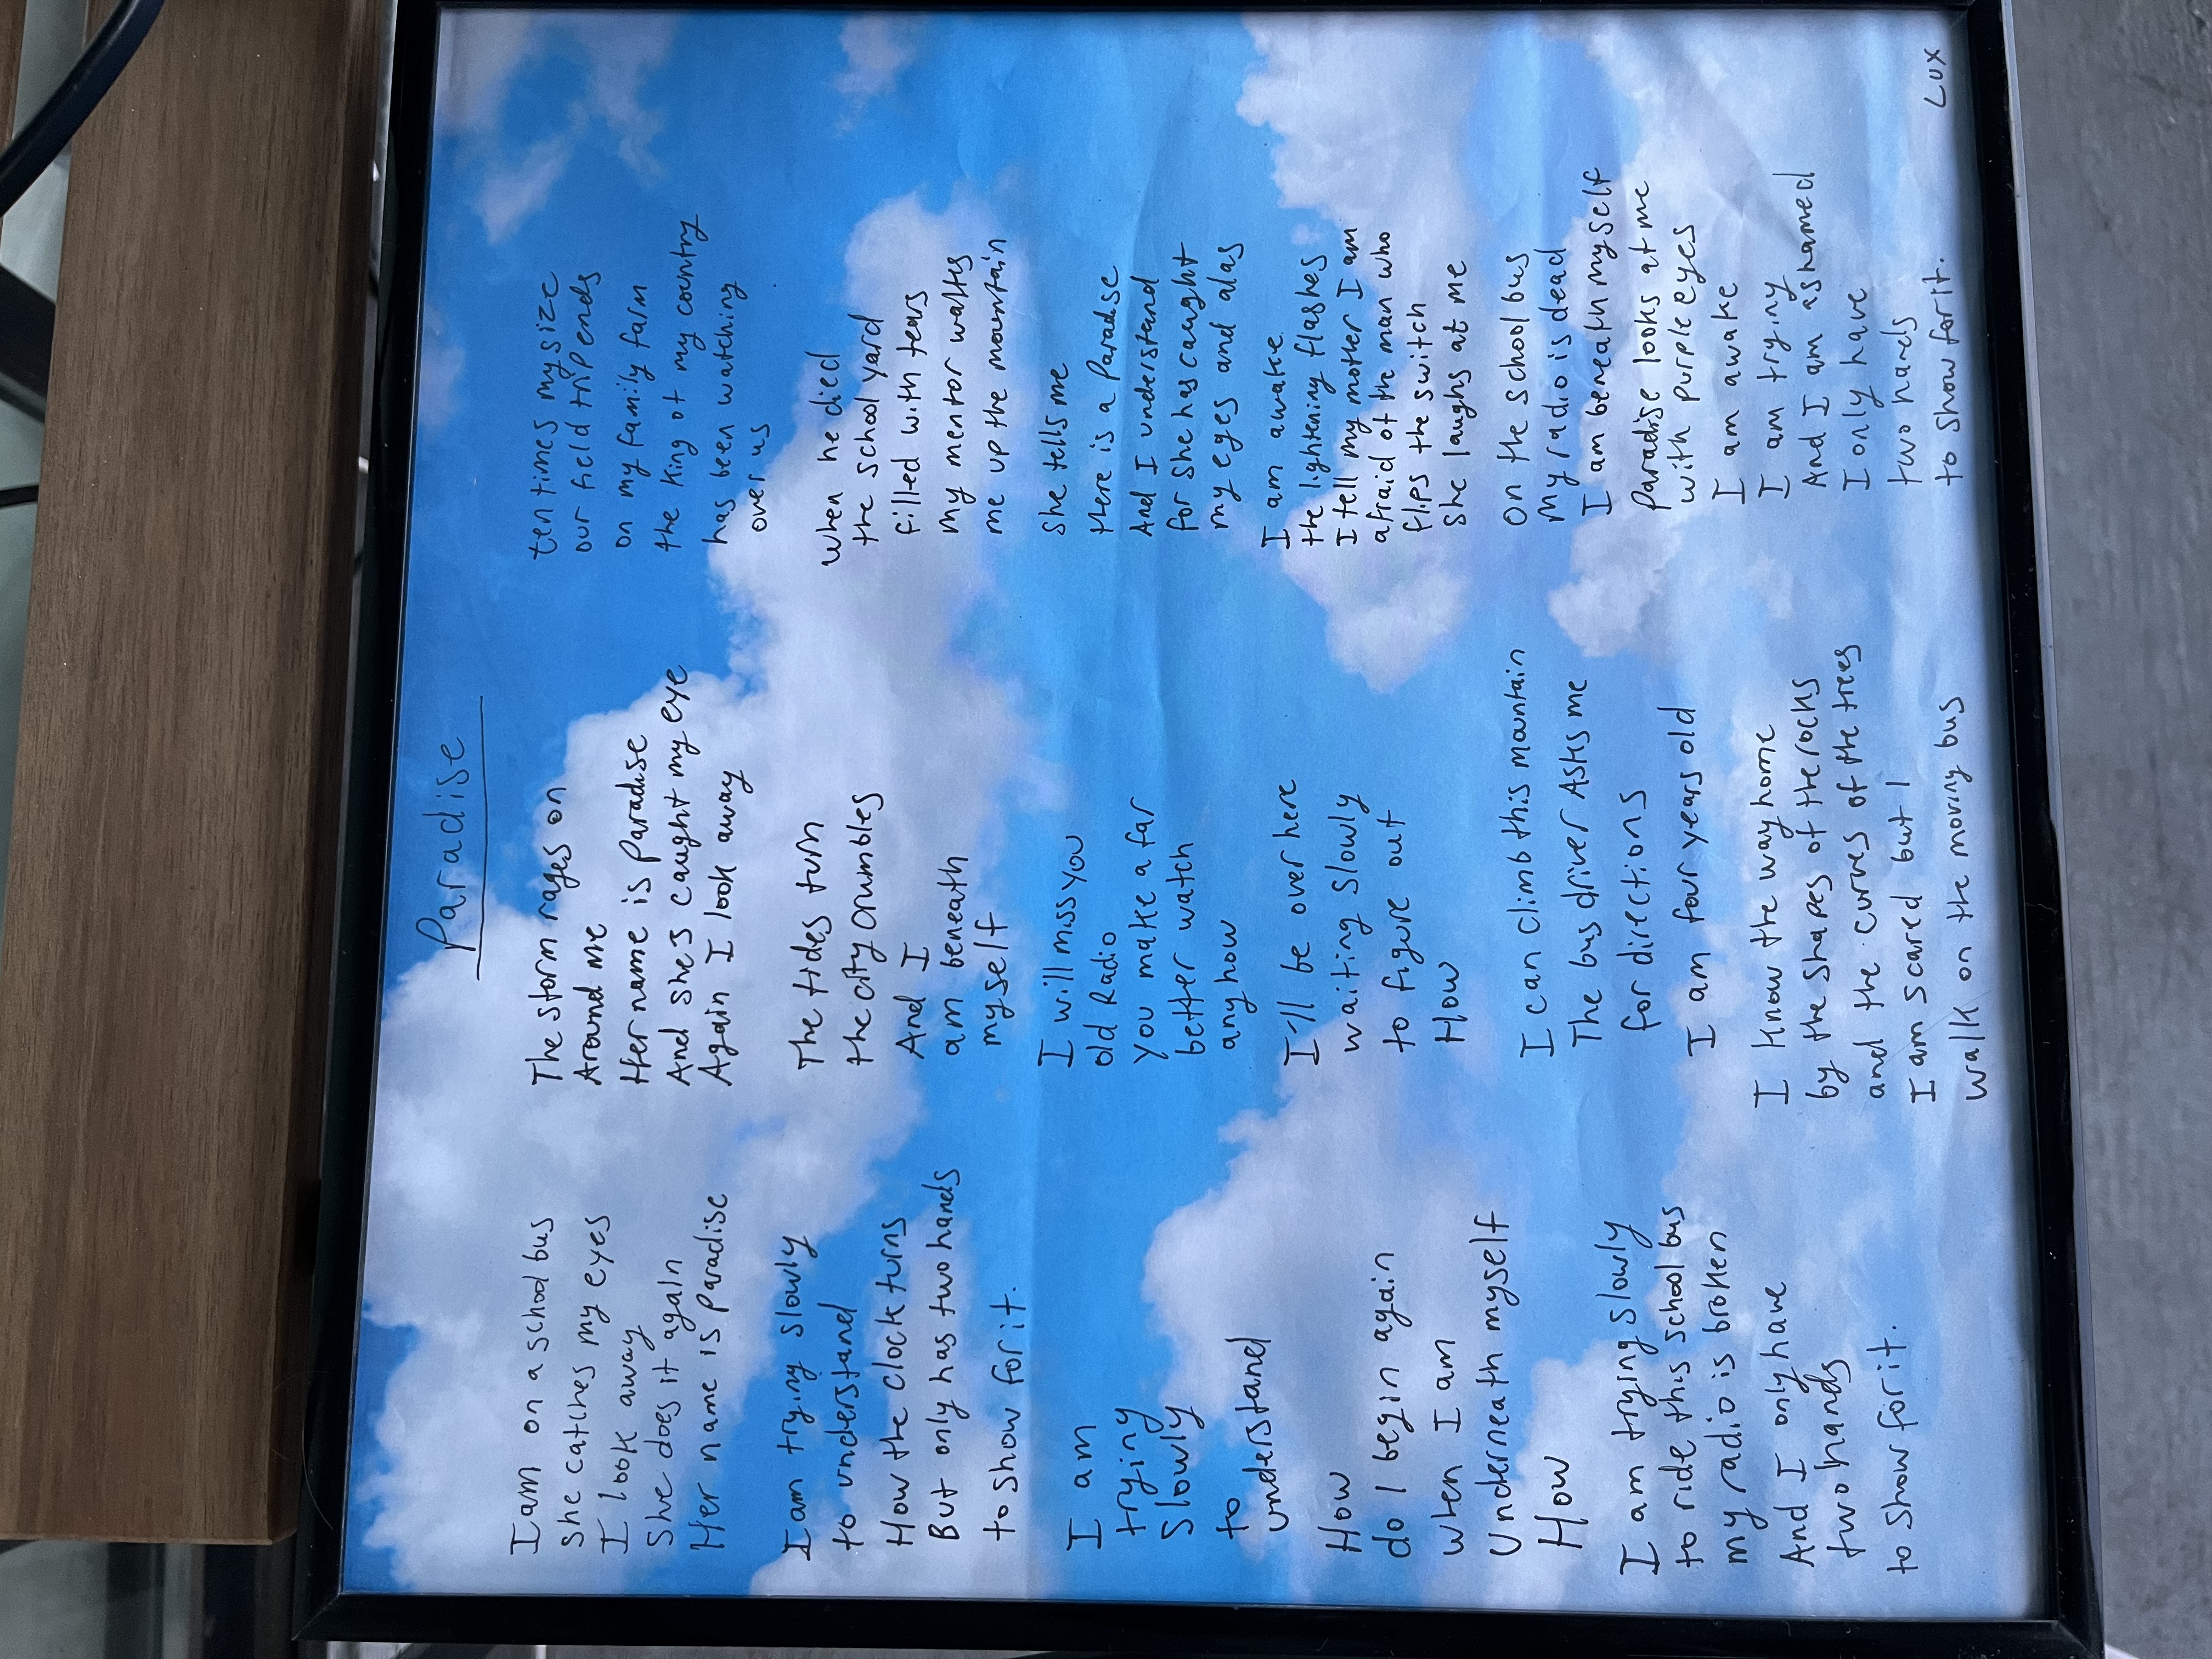 Paradise
I am on a school bus
she catches my eyes
I look away
She does it again
Her name is Paradise
I am trying slowly
to understand
How the clock turns
But only has two hands
to show for it.
I am
trying
Slowly
to
understand
How
do I begin again
when I am
Underneath myself
How
I am trying slowly
to ride this school bus
my radio is broken
And I only have
two hands
to show for it.
The storm rages on
Around me
Her name is Paradise
And she's caught my eye
Again I look away
The tides turn
the city crumbles
And I
am beneath
myself
I will miss you
old Radio
you make a far
better watch
any how
I'll be over here
waiting slowly
to figure out
How
I can climb this mountain
The bus driver Asks me
for directions
I am four years old
I know the way home
by the shapes of the rocks
and the curves of the trees
I am scared but I
walk on the moving bus
ten times my size
our field trip ends
on my family farm
the king of my country
has been watching
over us
when he died
the school yard
filled with tears
my mentor walks
me up the mountain
She tells me
there is a Paradise
And I understand
for she has caught
my eyes and alas
I am awake
the lightening flashes
I tell my mother I am
afraid of the man who
flips the switch
she laughs at me
On the school bus
My radio is dead
I am beneath myself
Paradise looks at me
with purple eyes
I am awake
I am trying
And I am ashamed
I only have
two hands
to show for it.
Lux